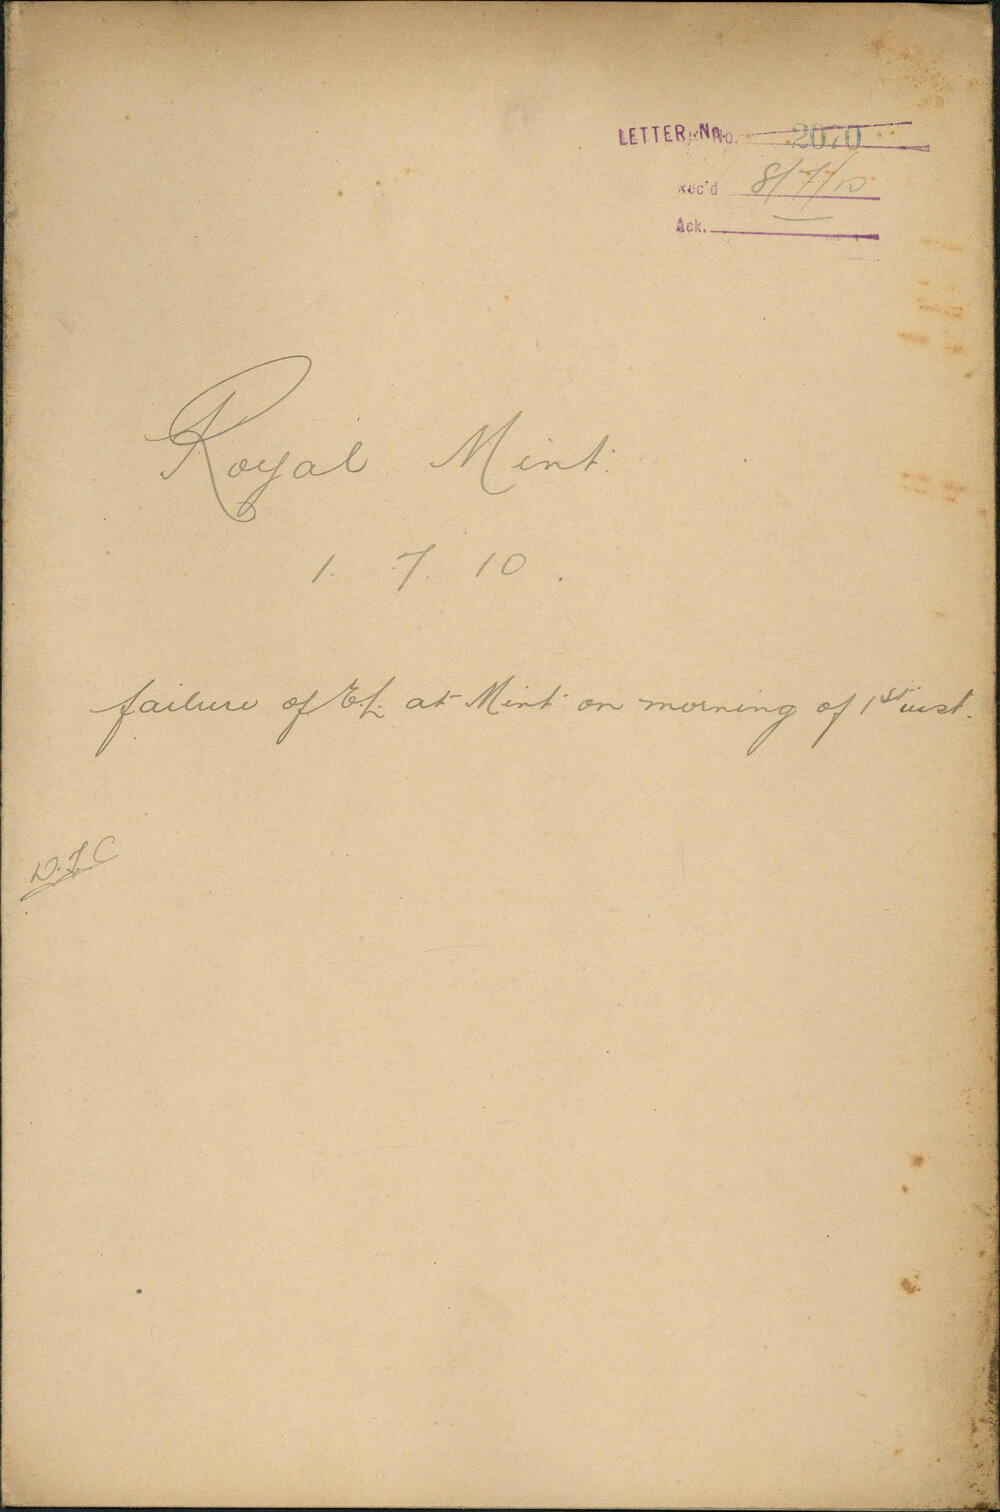 LETTER No. 2070
Rec'd 8/7/10
Ack.
Royal Mint.
1. 7. 10.
failure of E.L. at Mint on morning of 1st inst.
D.F.C